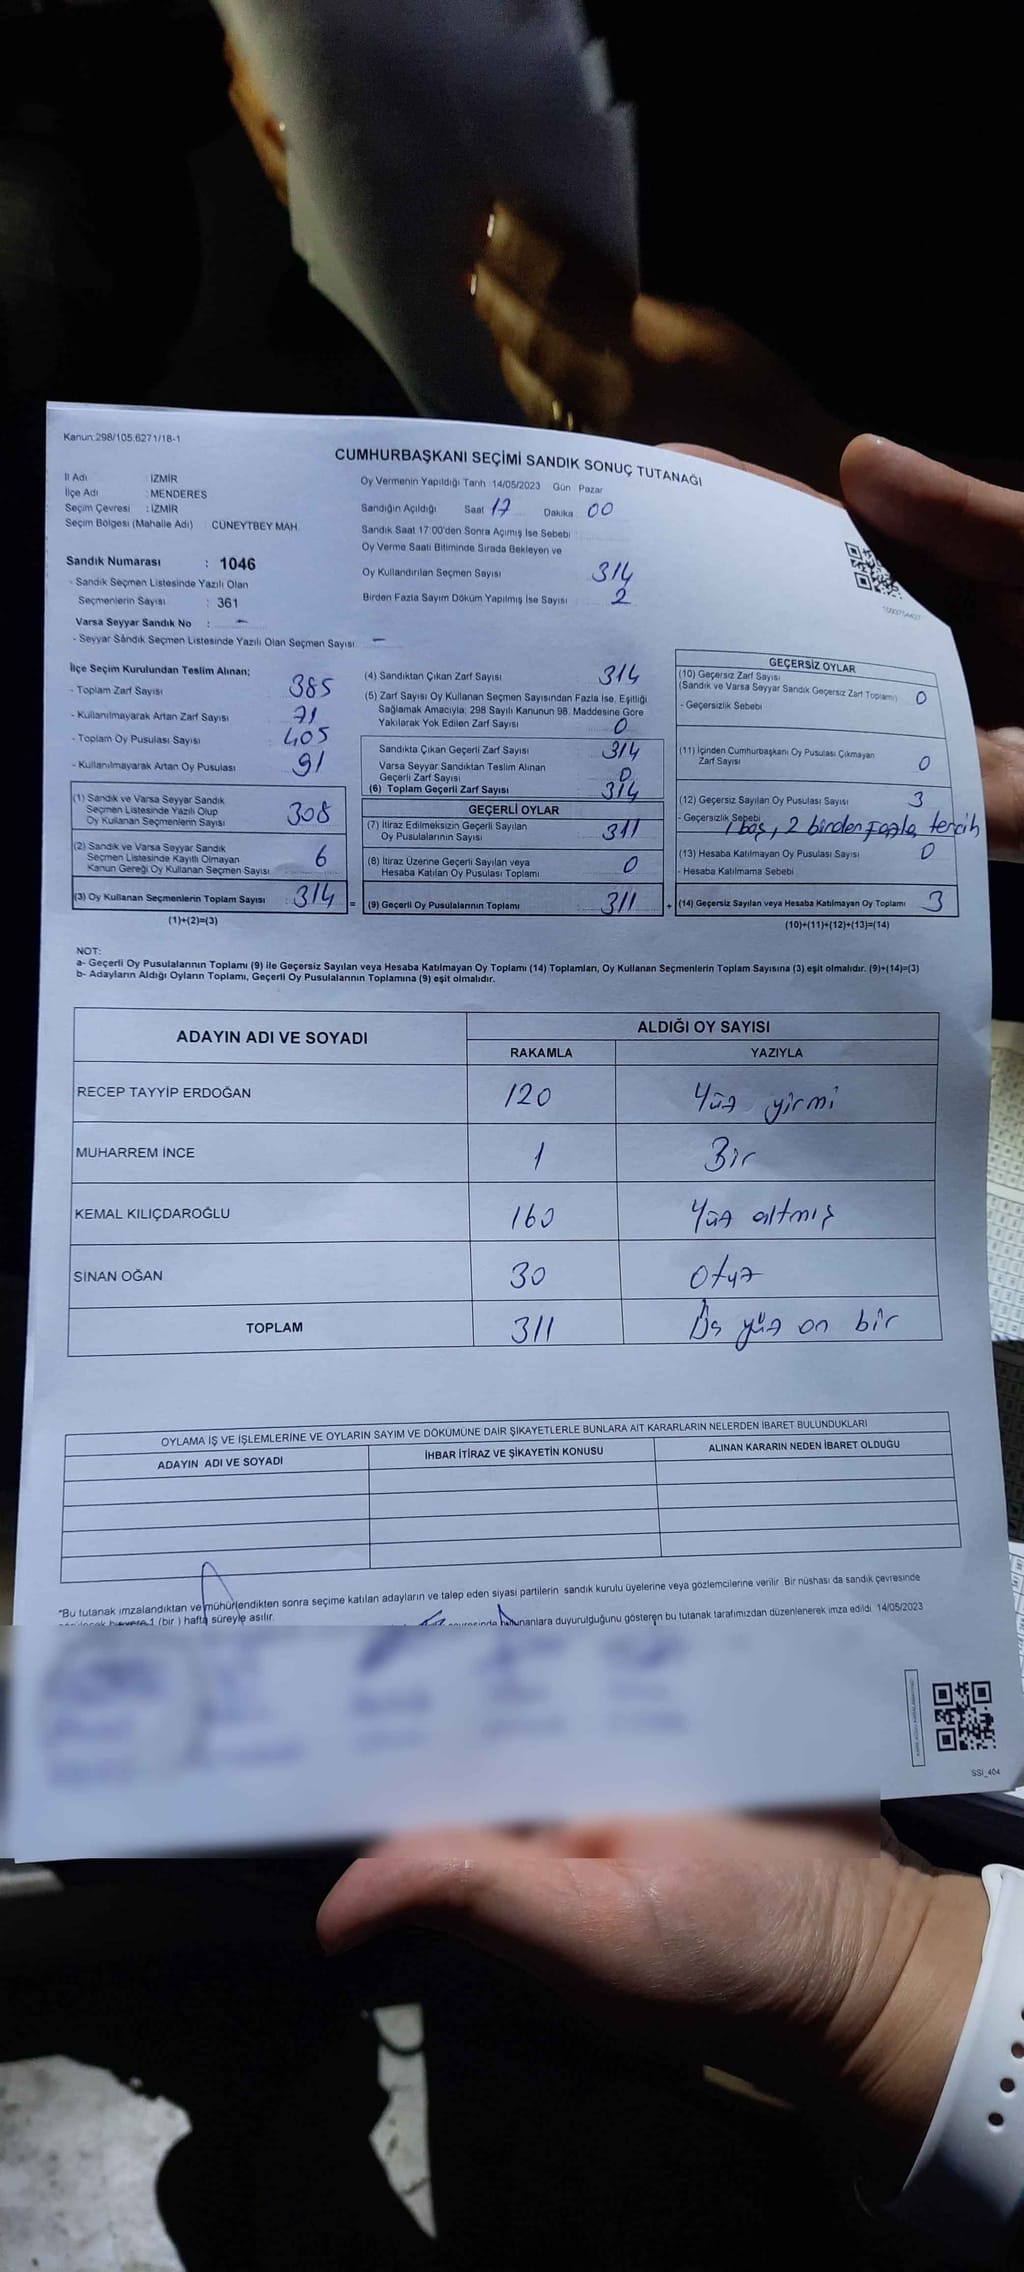 Kanun:298/105.6271/18-1
CUMHURBAŞKANI SEÇİMİ SANDIK SONUÇ TUTANAĞI
İl Adı : İZMİR
İlçe Adı : MENDERES
Seçim Çevresi : İZMİR
Seçim Bölgesi (Mahalle Adı) : CÜNEYTBEY MAH.
Sandık Numarası : 1046
- Sandık Seçmen Listesinde Yazılı Olan
Seçmenlerin Sayısı : 361
Varsa Seyyar Sandık No : -
- Seyyar Sandık Seçmen Listesinde Yazılı Olan Seçmen Sayısı -
Oy Vermenin Yapıldığı Tarih :14/05/2023 Gün Pazar
Sandığın Açıldığı Saat 17 Dakika 00
Sandık Saat 17:00'den Sonra Açımış İse Sebebi :
Oy Verme Saati Bitiminde Sırada Bekleyen ve
Oy Kullandırılan Seçmen Sayısı 314
Birden Fazla Sayım Döküm Yapılmış İse Sayısı 2
İlçe Seçim Kurulundan Teslim Alınan;
- Toplam Zarf Sayısı 385
- Kullanılmayarak Artan Zarf Sayısı 71
- Toplam Oy Pusulası Sayısı 405
- Kullanılmayarak Artan Oy Pusulası 91
(1) Sandık ve Varsa Seyyar Sandık
Seçmen Listesinde Yazılı Olup
Oy Kullanan Seçmenlerin Sayısı 308
(2) Sandık ve Varsa Seyyar Sandık
Seçmen Listesinde Kayıtlı Olmayan
Kanun Gereği Oy Kullanan Seçmen Sayısı 6
(3) Oy Kullanan Seçmenlerin Toplam Sayısı : 314
(1)+(2)=(3)
(4) Sandıktan Çıkan Zarf Sayısı 314
(5) Zarf Sayısı Oy Kullanan Seçmen Sayısından Fazla İse, Eşitliği
Sağlamak Amacıyla; 298 Sayılı Kanunun 98. Maddesine Göre
Yakılarak Yok Edilen Zarf Sayısı 0
Sandıkta Çıkan Geçerli Zarf Sayısı 314
Varsa Seyyar Sandıktan Teslim Alınan
Geçerli Zarf Sayısı 0
(6) Toplam Geçerli Zarf Sayısı 314
GEÇERLİ OYLAR
(7) İtiraz Edilmeksizin Geçerli Sayılan
Oy Pusulalarının Sayısı 311
(8) İtiraz Üzerine Geçerli Sayılan veya
Hesaba Katılan Oy Pusulası Toplamı 0
= (9) Geçerli Oy Pusulalarının Toplamı 311
GEÇERSİZ OYLAR
(10) Geçersiz Zarf Sayısı
(Sandık ve Varsa Seyyar Sandık Geçersiz Zarf Toplamı) 0
- Geçersizlik Sebebi
(11) İçinden Cumhurbaşkanı Oy Pusulası Çıkmayan
Zarf Sayısı 0
(12) Geçersiz Sayılan Oy Pusulası Sayısı 3
- Geçersizlik Sebebi 1 boş, 2 birden fazla tercih
(13) Hesaba Katılmayan Oy Pusulası Sayısı 0
- Hesaba Katılmama Sebebi
+ (14) Geçersiz Sayılan veya Hesaba Katılmayan Oy Toplamı 3
(10)+(11)+(12)+(13)=(14)
NOT:
a- Geçerli Oy Pusulalarının Toplamı (9) ile Geçersiz Sayılan veya Hesaba Katılmayan Oy Toplamı (14) Toplamları, Oy Kullanan Seçmenlerin Toplam Sayısına (3) eşit olmalıdır. (9)+(14)=(3)
b- Adayların Aldığı Oyların Toplamı, Geçerli Oy Pusulalarının Toplamına (9) eşit olmalıdır.
ADAYIN ADI VE SOYADI ALDIĞI OY SAYISI
RAKAMLA YAZIYLA
RECEP TAYYİP ERDOĞAN 120 Yüz yirmi
MUHARREM İNCE 1 Bir
KEMAL KILIÇDAROĞLU 160 Yüz altmış
SİNAN OĞAN 30 Otuz
TOPLAM 311 Üç yüz on bir
OYLAMA İŞ VE İŞLEMLERİNE VE OYLARIN SAYIM VE DÖKÜMÜNE DAİR ŞİKAYETLERLE BUNLARA AİT KARARLARIN NELERDEN İBARET BULUNDUKLARI
ADAYIN ADI VE SOYADI İHBAR İTİRAZ VE ŞİKAYETİN KONUSU ALINAN KARARIN NEDEN İBARET OLDUĞU
*Bu tutanak imzalandıktan ve mühürlendikten sonra seçime katılan adayların ve talep eden siyasi partilerin sandık kurulu üyelerine veya gözlemcilerine verilir. Bir nüshası da sandık çevresinde
1 (bir) hafta süreyle asılır.
duyurulduğunu gösteren bu tutanak tarafımızdan düzenlenerek imza edildi. 14/05/2023
SSİ_404